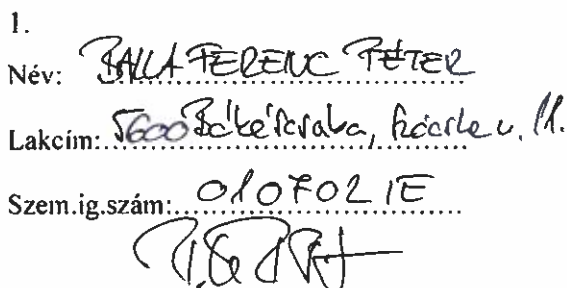 1.
Név: BALLA FERENC PÉTER
Lakcím: 5600 Békéscsaba, u. 11.
Szem.ig.szám: 010702 IE